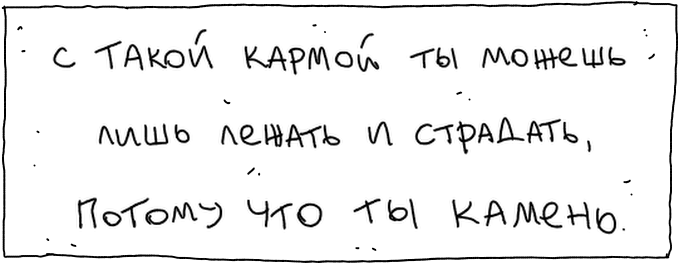 С ТАКОЙ КАРМОЙ ТЫ МОЖЕШЬ
ЛИШЬ ЛЕЖАТЬ И СТРАДАТЬ,
ПОТОМУ ЧТО ТЫ КАМЕНЬ.